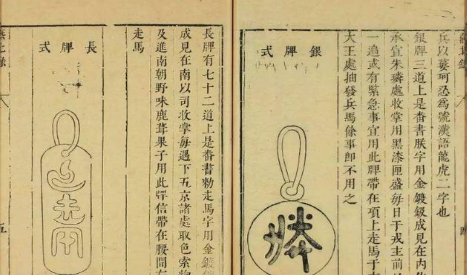 銀牌式
兵以婆
恐爲號漢語龍虎二字也
銀牌三道上是番書朕字用金鍍銀成見在內
承宣
璘處收掌用黑漆匣盛每日于戎主前
一遍或有緊急事宜用此牌帶在項上走馬于
大王處抽發兵馬餘事即不用之
長牌式
長牌有七十二道上是番書勅走馬字用金鍍
成見在南
司收掌每遇下五京諸處取色索
及進南朝野味鹿茸果子用此牌信帶在腰間
走馬
五